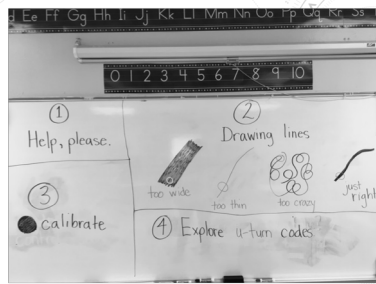 Ee Ff Gg Hh Ii Jj Kk Ll Mm Nn Oo Pp Qq Rr
0 1 2 3 4 5 6 7 8 9 10
1
Help, please.
2
Drawing lines
too wide
too thin
too crazy
just
right
3
calibrate
4 Explore u-turn codes